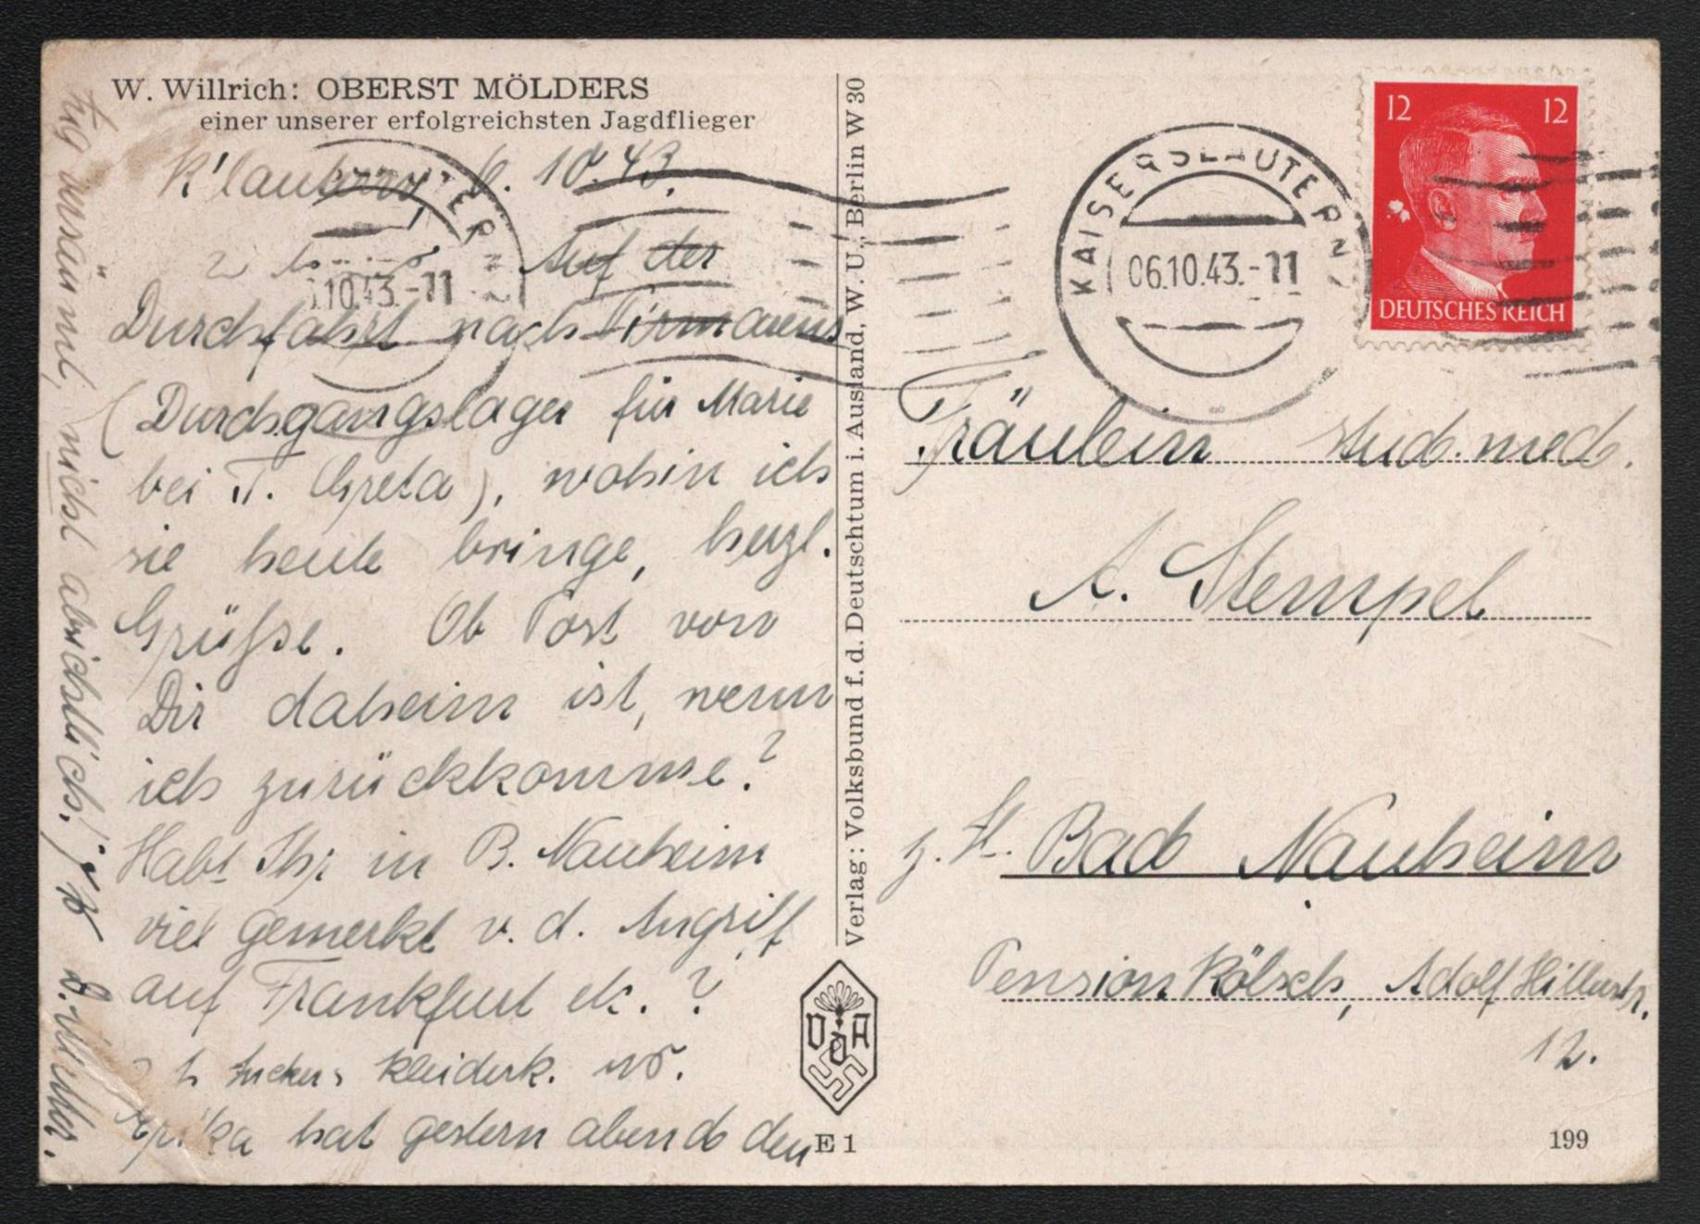 W. Willrich: OBERST MÖLDERS
einer unserer erfolgreichsten Jagdflieger
K'lautern, 6. 10. 43.
Auf der
Durchfahrt nach Pirmasens
(Durchgangslager für Marie
bei T. Greta), wohin ich
sie heute bringe, herzl.
Grüße. Ob Post von
Dir daheim ist, wenn
ich zurückkomme?
Habt Ihr in B. Nauheim
viel gemerkt v. d. Angriff
auf Frankfurt etc.?
Kleiderk.
Erika hat gestern abend den
Zug versäumt, nicht absichtlich!
D. Mutter.
Verlag: Volksbund f. d. Deutschtum i. Ausland, W. U., Berlin W 30
VDA
E 1
KAISERSLAUTERN
06.10.43.-11
.10.43.-11
12 12
DEUTSCHES REICH
Fräulein stud. med.
A. Stempel
z. Zt. Bad Nauheim
Pension Kölsch, Adolf Hitlerstr.
12.
199